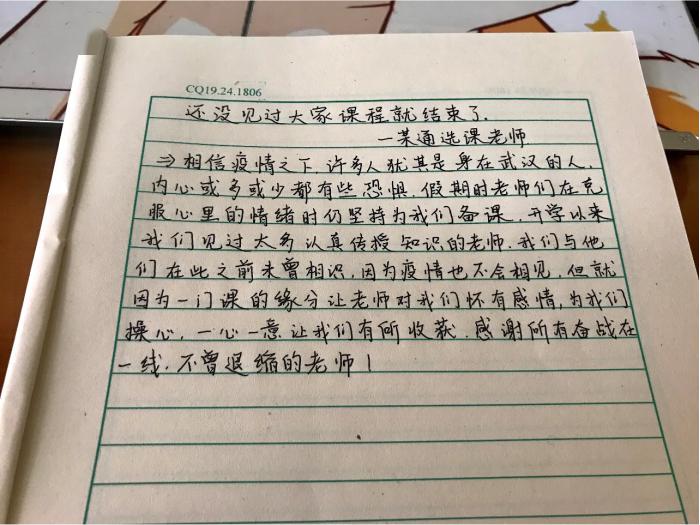 CQ19.24.1806
还没见过大家课程就结束了.
—某通选课老师
⇒相信疫情之下,许多人尤其是身在武汉的人,
内心或多或少都有些恐惧.假期时老师们在克
服心里的情绪时仍坚持为我们备课.开学以来
我们见过太多认真传授知识的老师.我们与他
们在此之前未曾相识,因为疫情也不会相见,但就
因为一门课的缘分让老师对我们怀有感情,为我们
操心,一心一意让我们有所收获.感谢所有奋战在
一线.不曾退缩的老师!